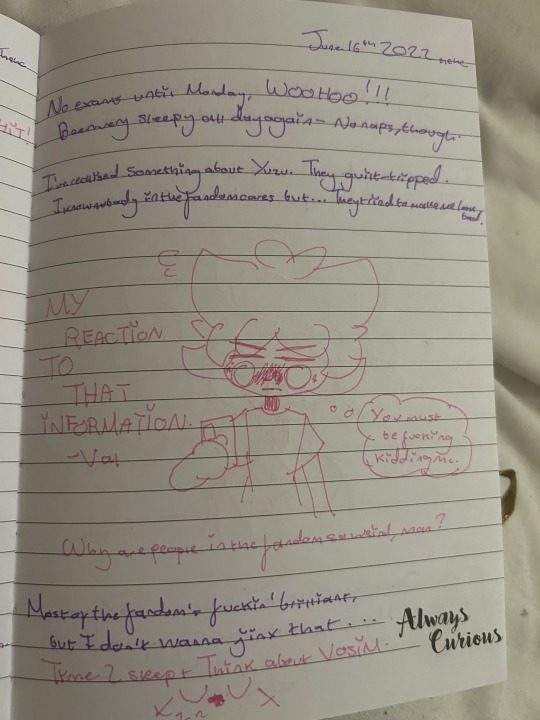 June 16th 2022
No exams until Monday, WOOHOO!!!
Been very sleepy all day again - No naps, though.
I've realised something about Yuzu. They guilt-tripped.
I know nobody in the fandom cares but... They tried to make me look bad.
MY
REACTION
TO
THAT
INFORMATION.
-Val
You must
be fucking
kidding me.
Why are people in the fandom so weird, man?
Most of the fandom's fuckin' brilliant,
but I don't wanna jinx that...
Time 2 sleep + Think about Vosim.
Always
Curious